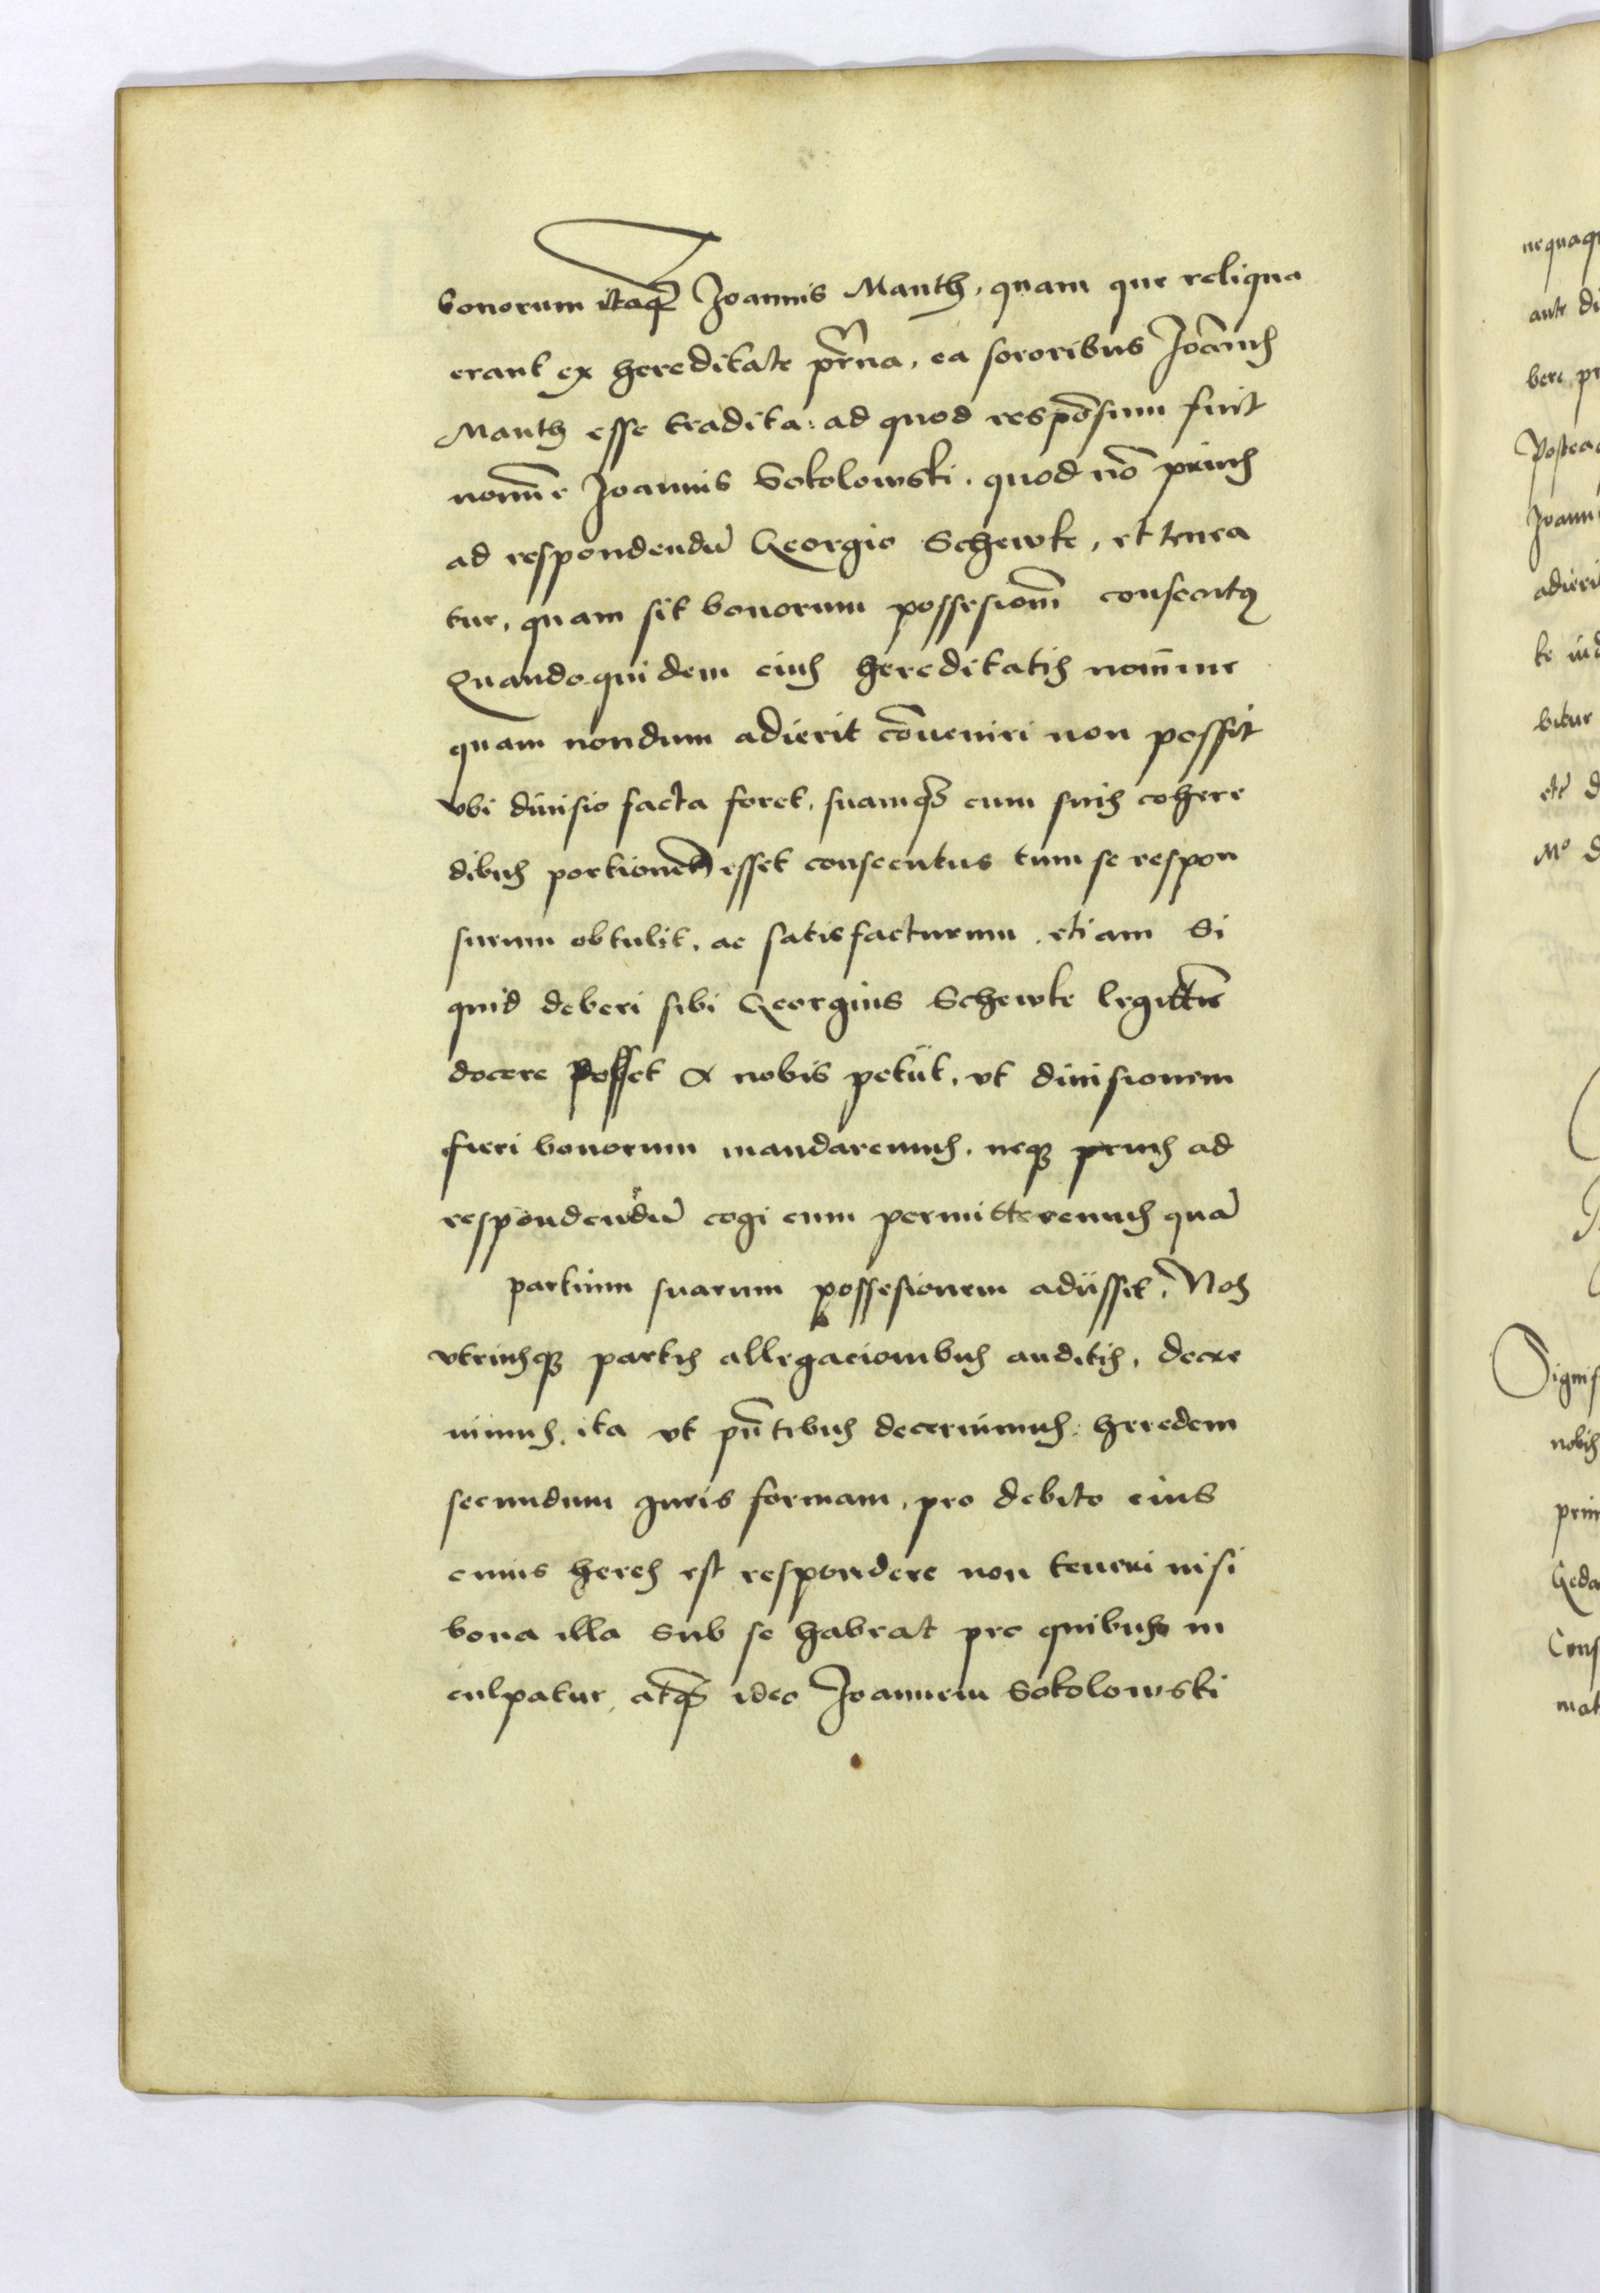 bonorum itaq̃ Joannis Manth, quam que reliqua
erant ex hereditate pr̃na, ea sororibus Joãnis
Manth esse tradita: ad quod respõsum fuit
nomĩe Joannis Sokolowski. quod nõ prius
ad respondendũ Georgio Schewke, et tenea
tur, quam sit bonorum possesionẽ consecutꝰ
Quandoquidem eius hereditatis nomine
quam nondum adierit cõueniri non possit
vbi diuisio facta foret, suamq̃ cum suis cohere
dibus portionem esset consecutus tum se respon
surum obtulit, ac satisfacturum, etiam si
quid deberi sibi Georgius Schewke legittĩe
docere posset & nobis petiit, vt diuisionem
fieri bonorum mandaremus, neqꝫ prius ad
respondendũ cogi eum permitteremus quã
partium suarum possesionem adiisset. Nos
vtriusqꝫ partis allegacionibus auditis, decre
uimus, ita vt pñtibus decernimus: heredem
secundum Juris formam, pro debito eius
cuius heres est respondere non teneri nisi
bona illa sub se habeat pro quibus in
culpatur, atq̃ ideo Joannem Sokolowski
nequaq
ante di
bere pr
Postea
Joann
adieri
ke iud
bitur
etc̃ d
Mº d
Signif
nobis
prin
Geda
Cons
mat